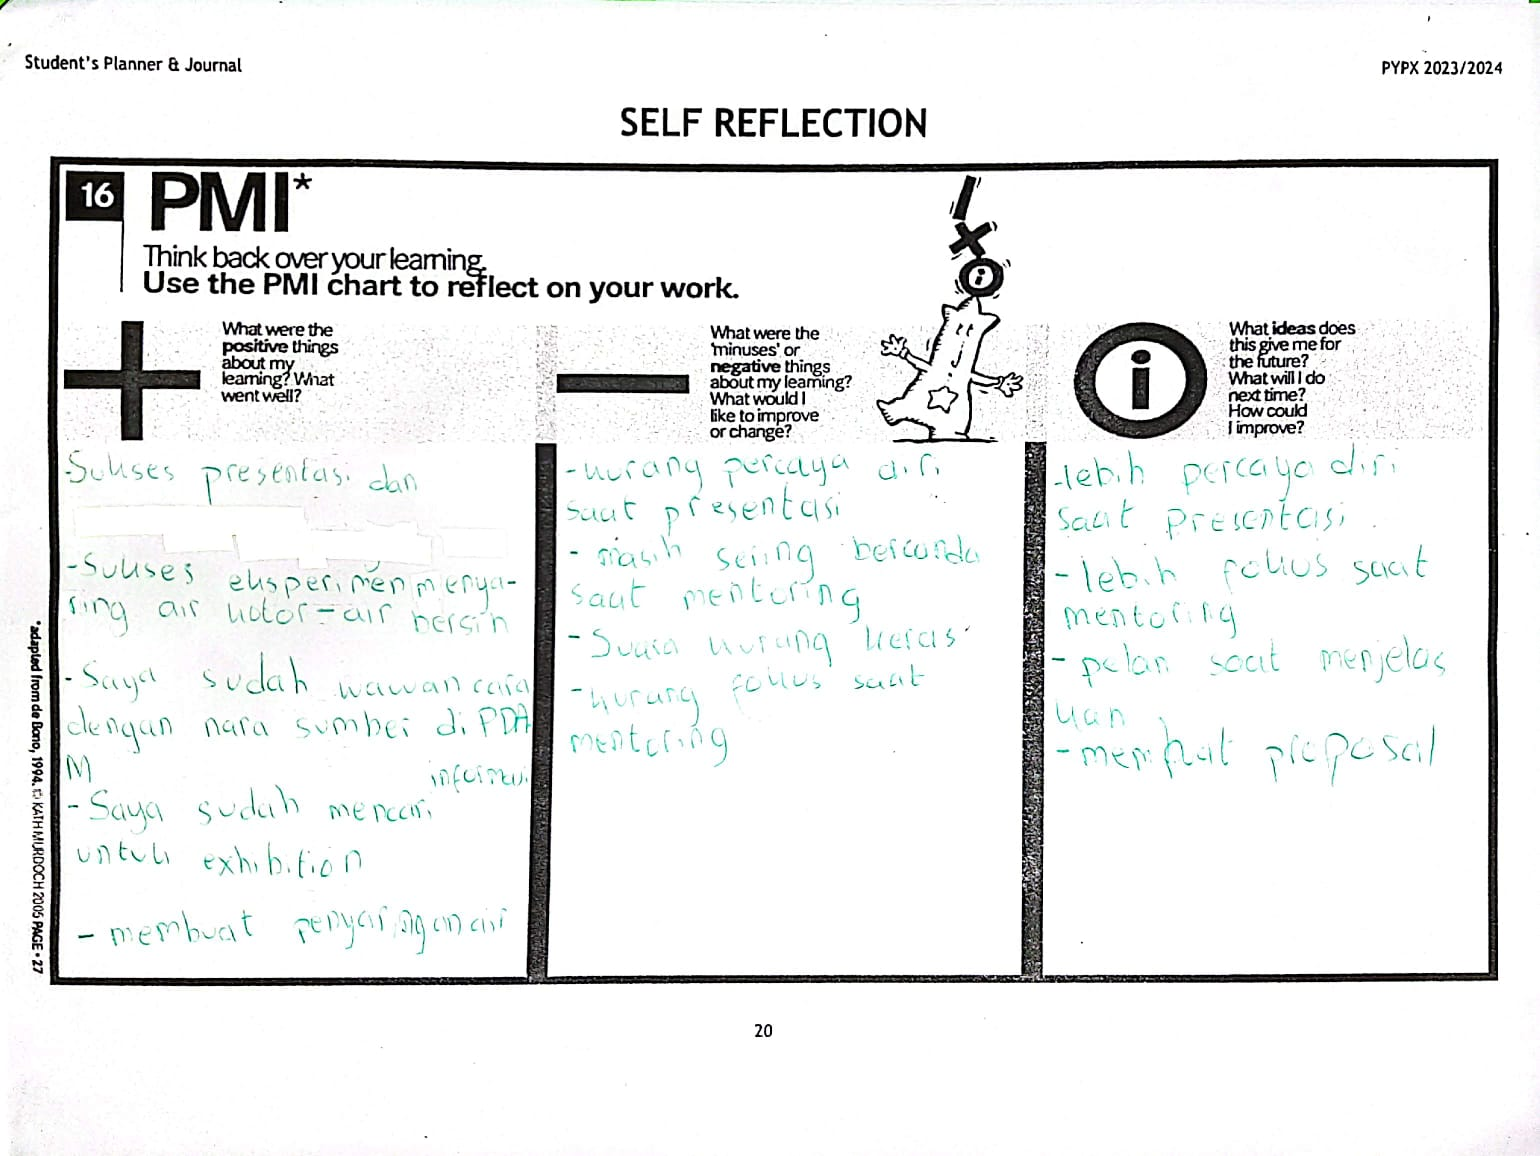 Student's Planner & Journal
PYPX 2023/2024
SELF REFLECTION
16
PMI*
Think back over your learning.
Use the PMI chart to reflect on your work.
What were the
positive things
about my
learning? What
went well?
-Sukses presentasi dan
-Sukses eksperimen menya-
ring air kotor-air bersih
-Saya sudah wawancara
dengan nara sumber di PDA
M
informasi
-Saya sudah mencari
untuk exhibition
- membuat penyaringan air
What were the
'minuses' or
negative things
about my learning?
What would I
like to improve
or change?
-kurang percaya diri
saat presentasi
- masih sering bercanda
saat mentoring
- Suara kurang keras
-kurang fokus saat
mentoring
i
What ideas does
this give me for
the future?
What will I do
next time?
How could
I improve?
-lebih percaya diri
saat presentasi.
-lebih fokus saat
mentoring
- pelan saat menjelas
kan
-membuat proposal
*adapted from de Bono, 1994. © KATH MURDOCH 2005 PAGE • 27
20